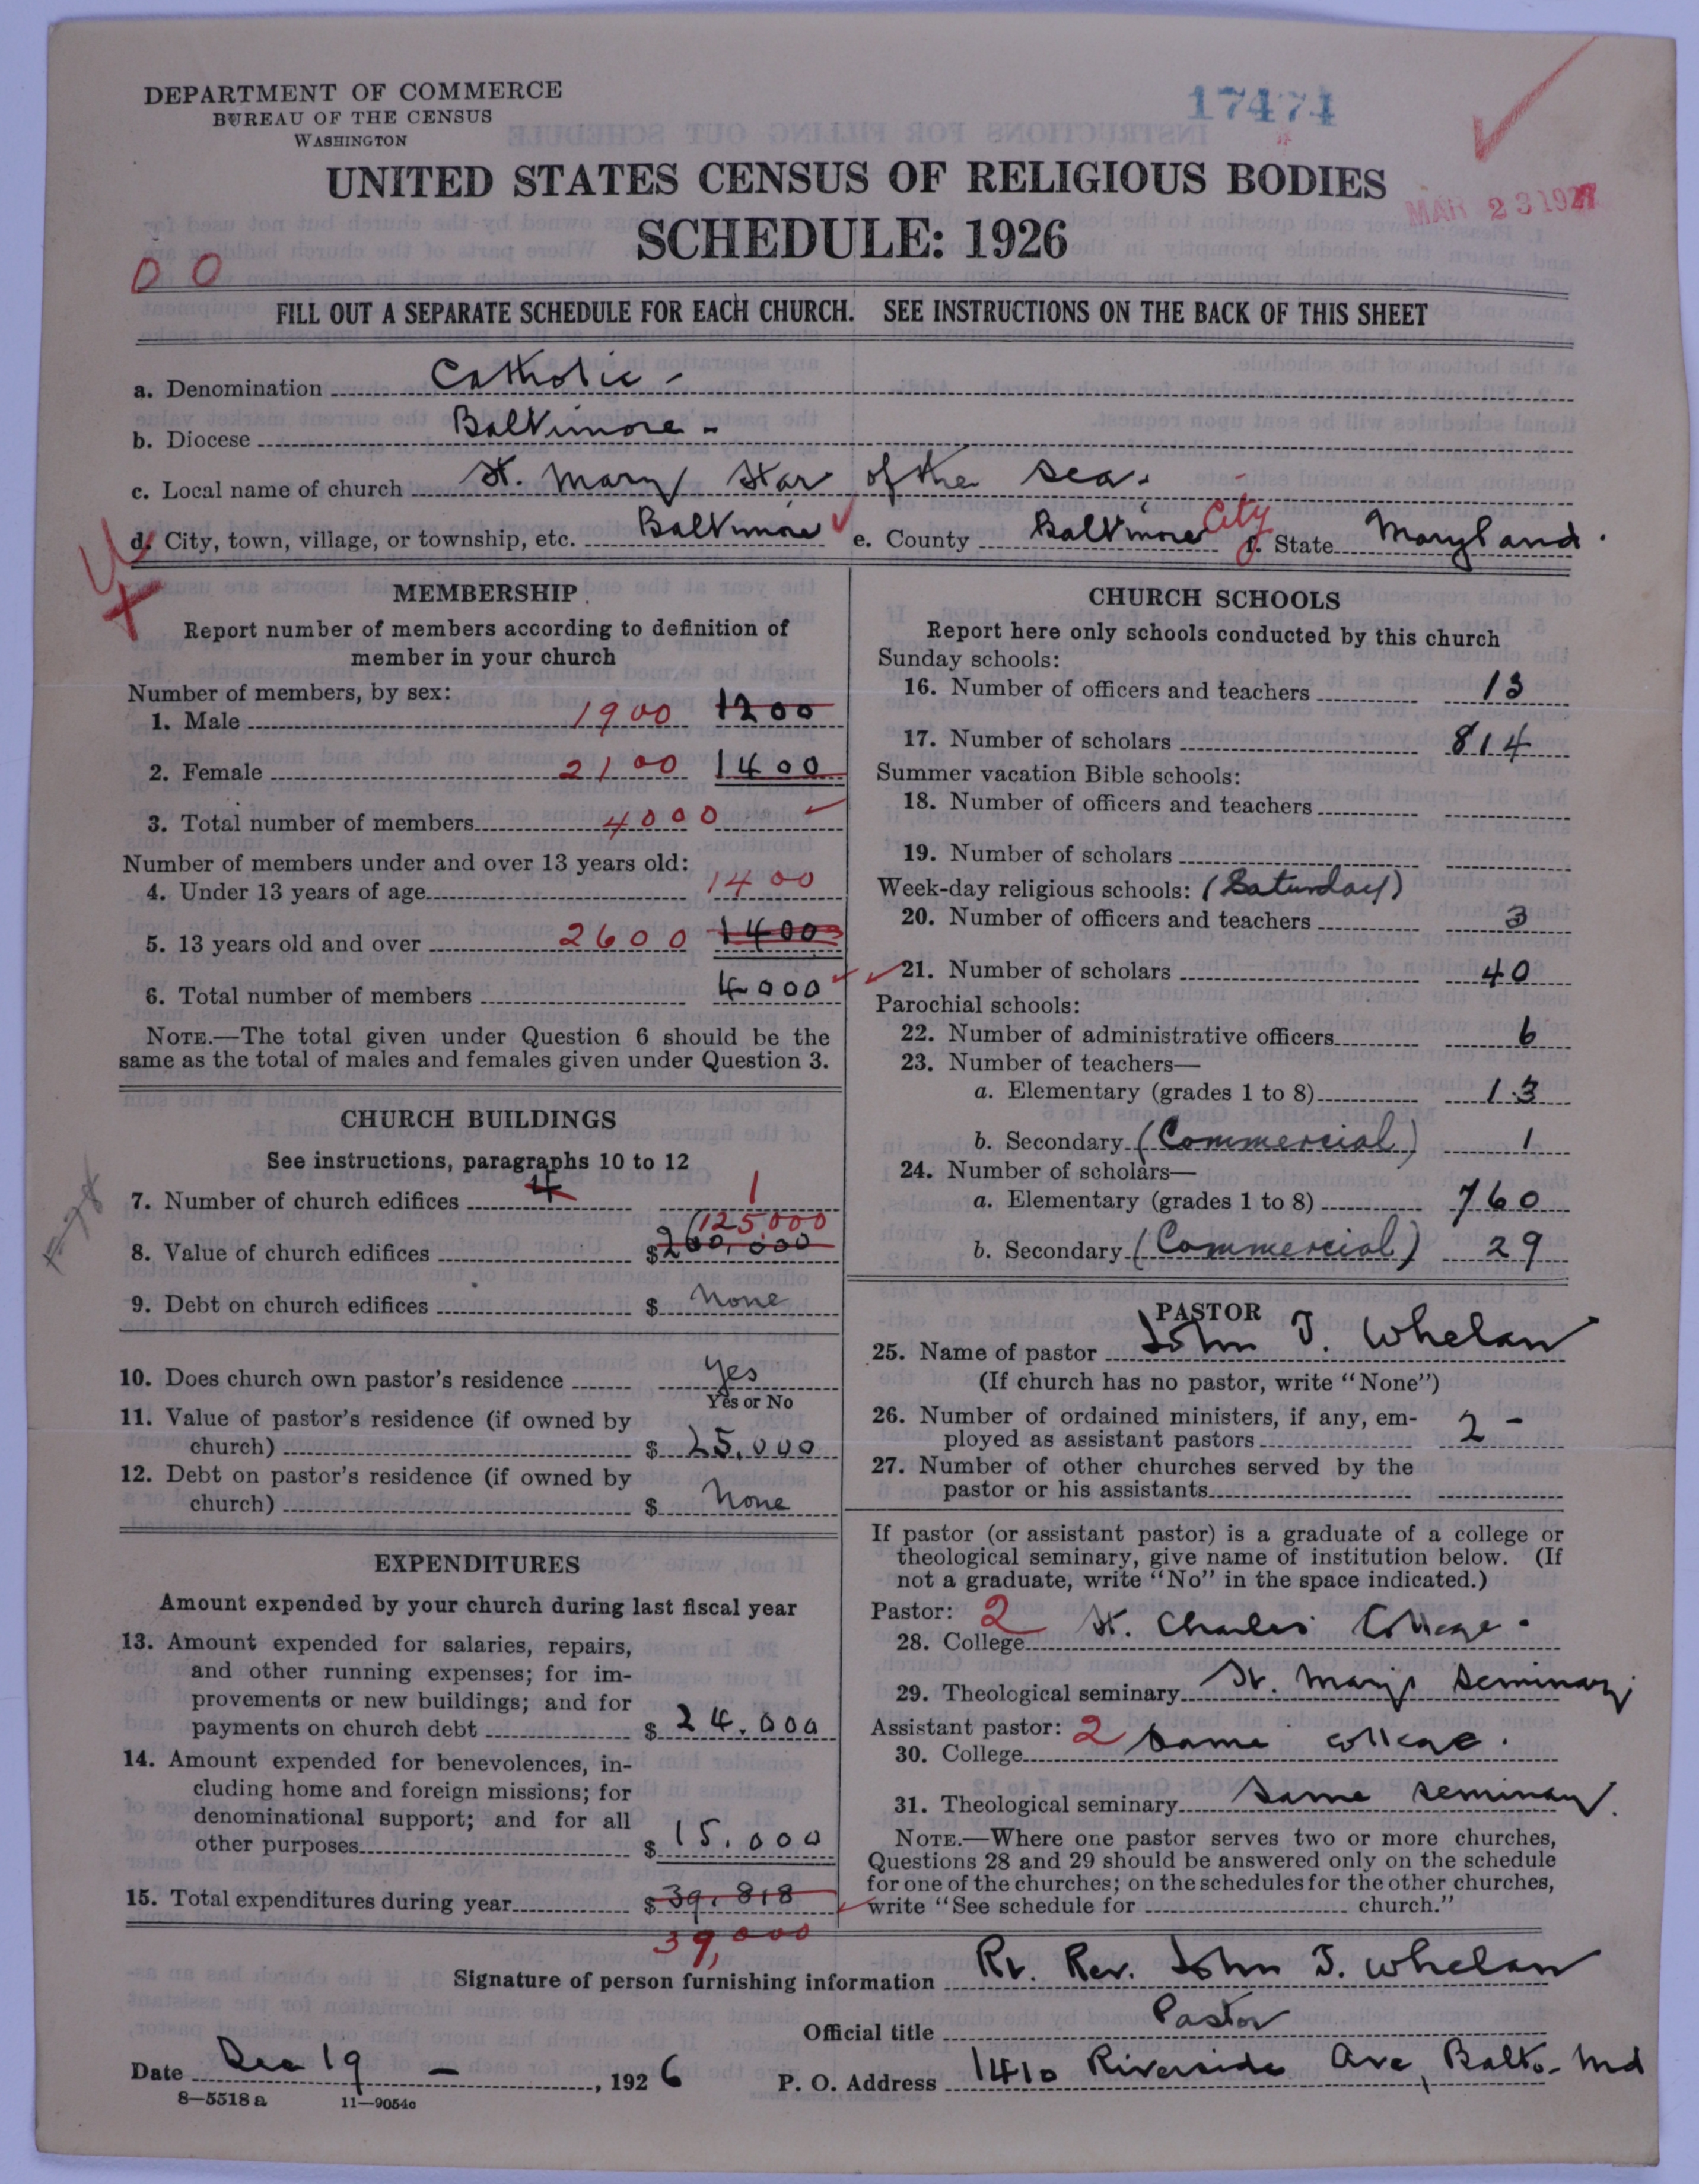 DEPARTMENT OF COMMERCE
BUREAU OF THE CENSUS
WASHINGTON
17474
UNITED STATES CENSUS OF RELIGIOUS BODIES
SCHEDULE: 1926
MAR 23 1927
00
FILL OUT A SEPARATE SCHEDULE FOR EACH CHURCH. SEE INSTRUCTIONS ON THE BACK OF THIS SHEET
a. Denomination Catholic -
b. Diocese Baltimore -
c. Local name of church St. Mary Star of the Sea.
d. City, town, village, or township, etc. Baltimore e. County Baltimore City f. State Maryland.
MEMBERSHIP
Report number of members according to definition of
member in your church
Number of members, by sex:
1. Male 1900 1200
2. Female 2100 1400
3. Total number of members 4000
Number of members under and over 13 years old:
4. Under 13 years of age 1400
5. 13 years old and over 2600 1400
6. Total number of members 4000
NOTE.—The total given under Question 6 should be the
same as the total of males and females given under Question 3.
CHURCH BUILDINGS
See instructions, paragraphs 10 to 12
7. Number of church edifices 4 1
125,000
8. Value of church edifices $ 200,000
9. Debt on church edifices $ None
10. Does church own pastor's residence Yes
Yes or No
11. Value of pastor's residence (if owned by
church) $ 25,000
12. Debt on pastor's residence (if owned by
church) $ None
EXPENDITURES
Amount expended by your church during last fiscal year
13. Amount expended for salaries, repairs,
and other running expenses; for im-
provements or new buildings; and for
payments on church debt $ 24.000
14. Amount expended for benevolences, in-
cluding home and foreign missions; for
denominational support; and for all
other purposes $ 15.000
15. Total expenditures during year $ 39,818
39,000
CHURCH SCHOOLS
Report here only schools conducted by this church
Sunday schools:
16. Number of officers and teachers 13
17. Number of scholars 814
Summer vacation Bible schools:
18. Number of officers and teachers
19. Number of scholars
Week-day religious schools: (Saturday)
20. Number of officers and teachers 3
21. Number of scholars 40
Parochial schools:
22. Number of administrative officers 6
23. Number of teachers—
a. Elementary (grades 1 to 8) 13
b. Secondary (Commercial) 1
24. Number of scholars—
a. Elementary (grades 1 to 8) 760
b. Secondary (Commercial) 29
PASTOR
25. Name of pastor John T. Whelan
(If church has no pastor, write "None")
26. Number of ordained ministers, if any, em-
ployed as assistant pastors 2 -
27. Number of other churches served by the
pastor or his assistants
If pastor (or assistant pastor) is a graduate of a college or
theological seminary, give name of institution below. (If
not a graduate, write "No" in the space indicated.)
Pastor: 2
28. College St. Charles College.
29. Theological seminary St. Mary's Seminary.
Assistant pastor: 2
30. College Same college.
31. Theological seminary Same Seminary.
NOTE.—Where one pastor serves two or more churches,
Questions 28 and 29 should be answered only on the schedule
for one of the churches; on the schedules for the other churches,
write "See schedule for church."
Signature of person furnishing information Rt. Rev. John T. Whelan
Official title Pastor
Date Dec 19 - , 1926 P. O. Address 1410 Riverside Ave, Balto- Md
8—5518 a 11—9054c